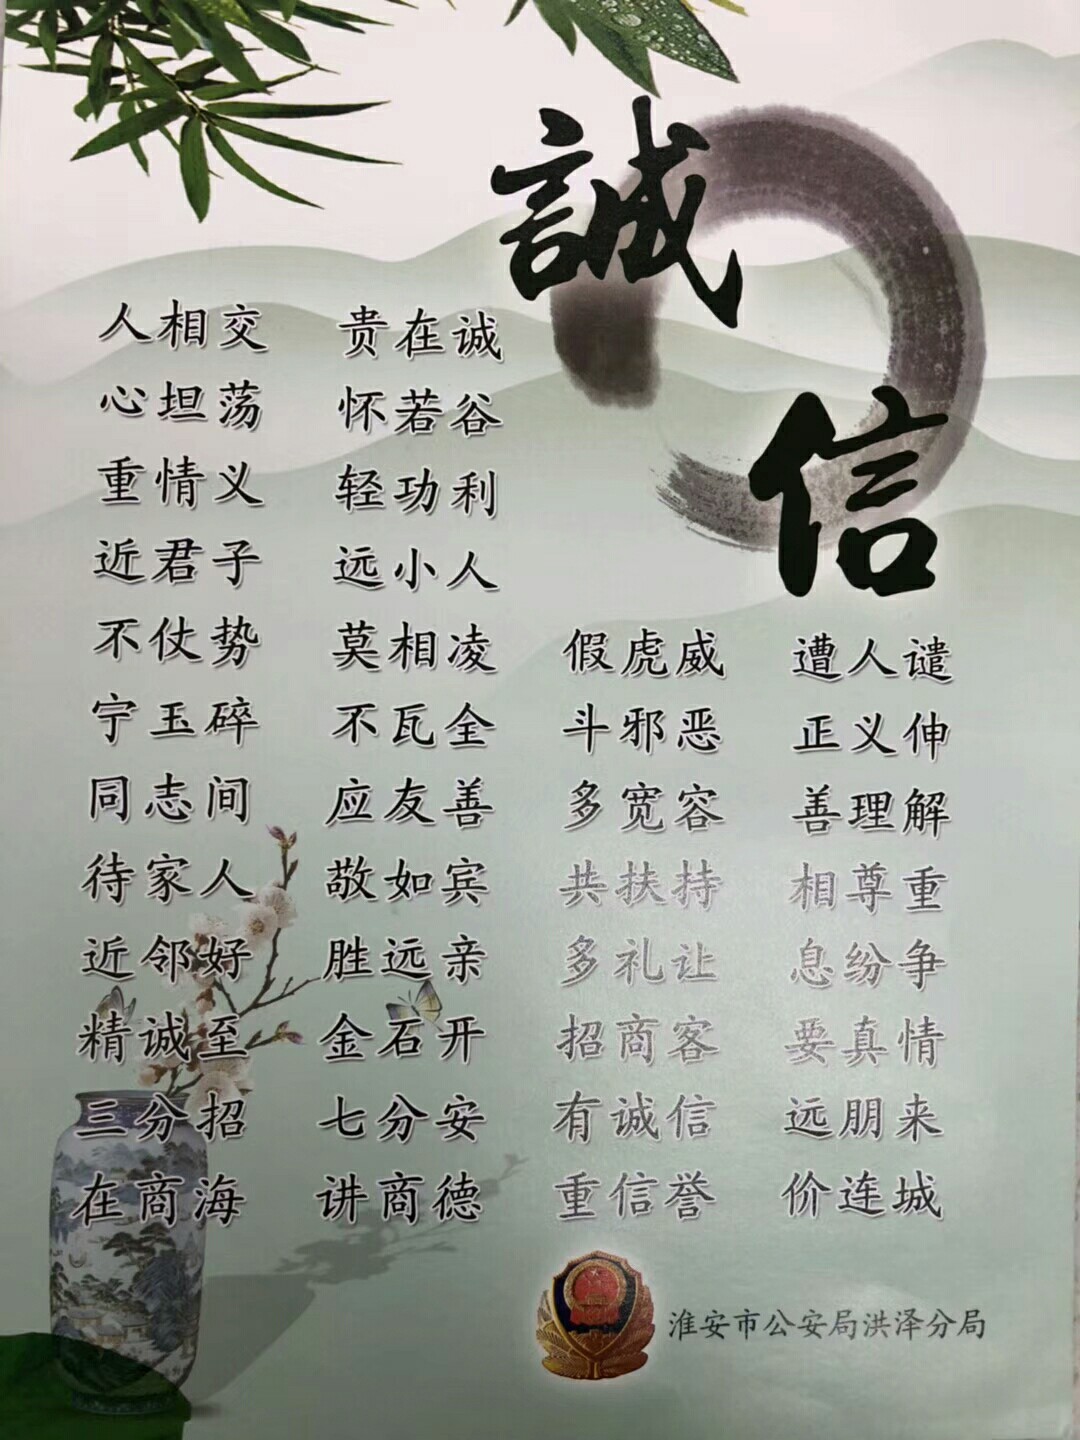 誠信
人相交 贵在诚
心坦荡 怀若谷
重情义 轻功利
近君子 远小人
不仗势 莫相凌 假虎威 遭人谴
宁玉碎 不瓦全 斗邪恶 正义伸
同志间 应友善 多宽容 善理解
待家人 敬如宾 共扶持 相尊重
近邻好 胜远亲 多礼让 息纷争
精诚至 金石开 招商客 要真情
三分招 七分安 有诚信 远朋来
在商海 讲商德 重信誉 价连城
淮安市公安局洪泽分局